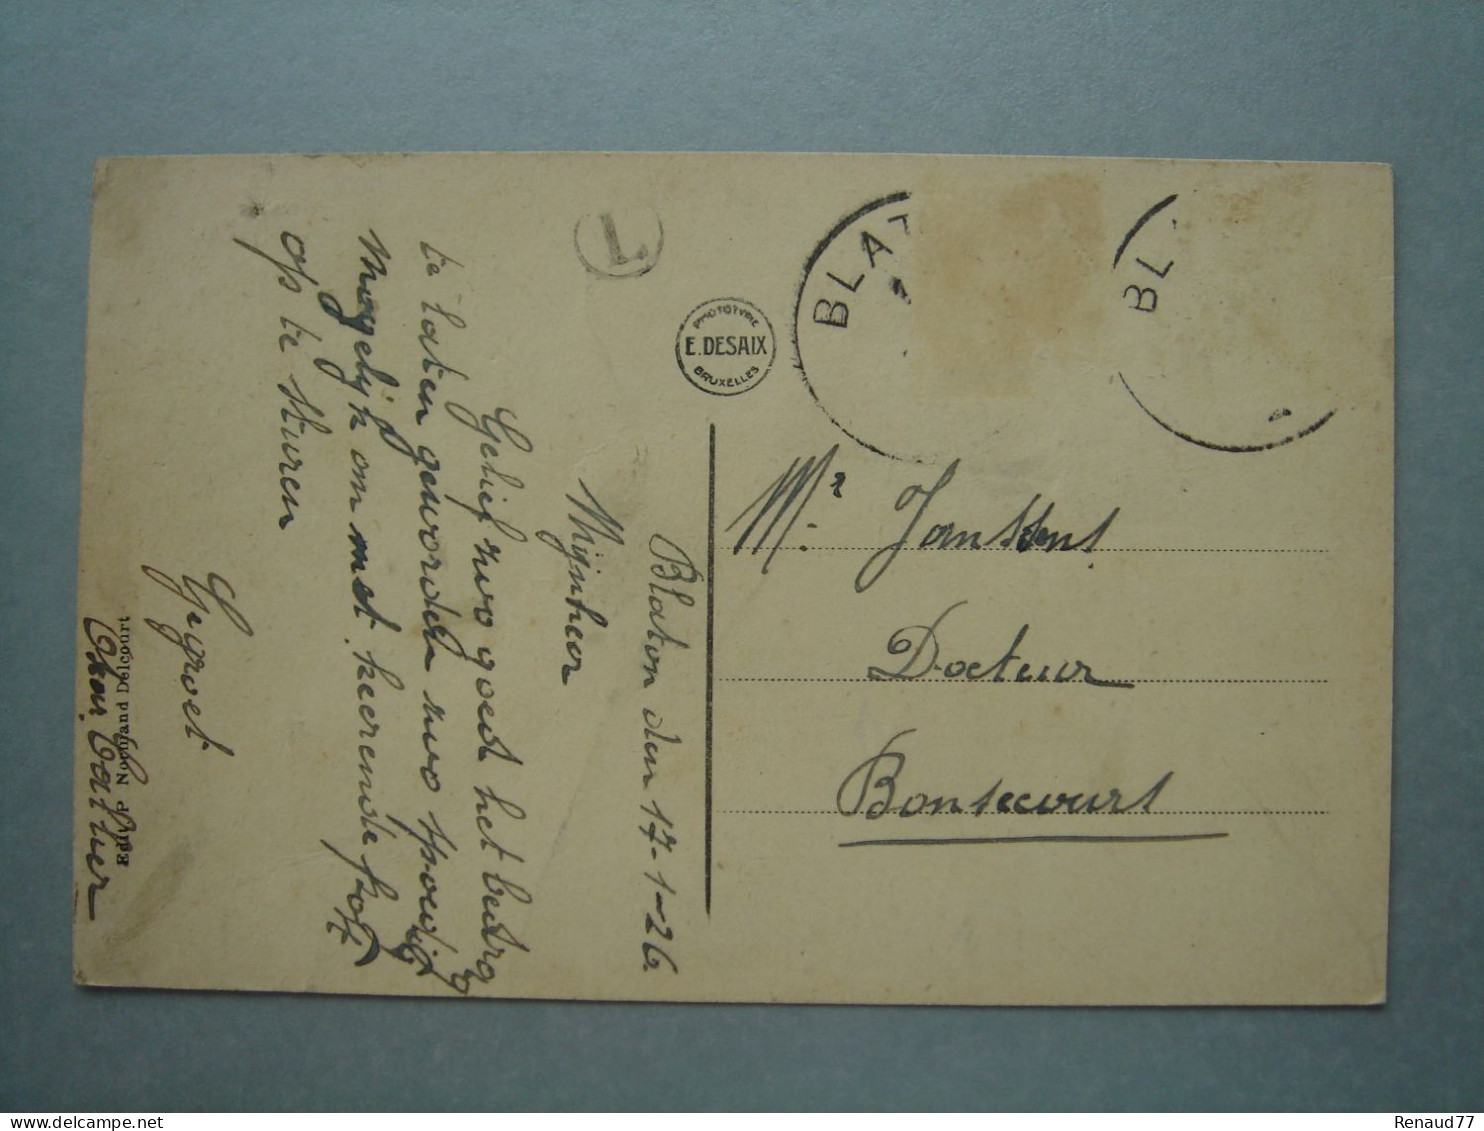 Blaton den 17-1-26.
Mijnheer
Gelief zwo goed het bedrag
te laten geworden zwo spoedig
mogelijk om met keerende post
op te sturen
Gegroet
Edit. P Normand Delcourt
PHOTOTYPIE
E. DESAIX
BRUXELLES
T.
BLAT
BL
Mr. Janssens
Docteur
Bonsecours
Renaud77